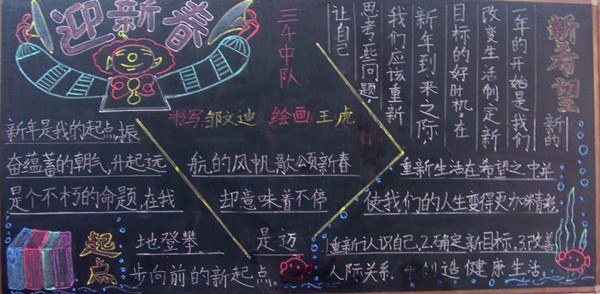 迎新春
三4中队
书写:邹文迪 绘画:王虎
新年是我的起点,振
奋蕴蓄的朝气,升起远 航的风帆,歌颂新春
是个不朽的命题,在我 却意味着不停
地登攀 是迈
步向前的新起点。
起点
新希望
新的
一年的开始是我们
改变生活制定新
目标的好时机。在
新年到来之际,
我们应该重新
思考些问题,
让自己
重新生活在希望之中并
使我们的人生变得更加精彩,
1.重新认识自己,2.确定新目标,3.改善
人际关系,4.创造健康生活。